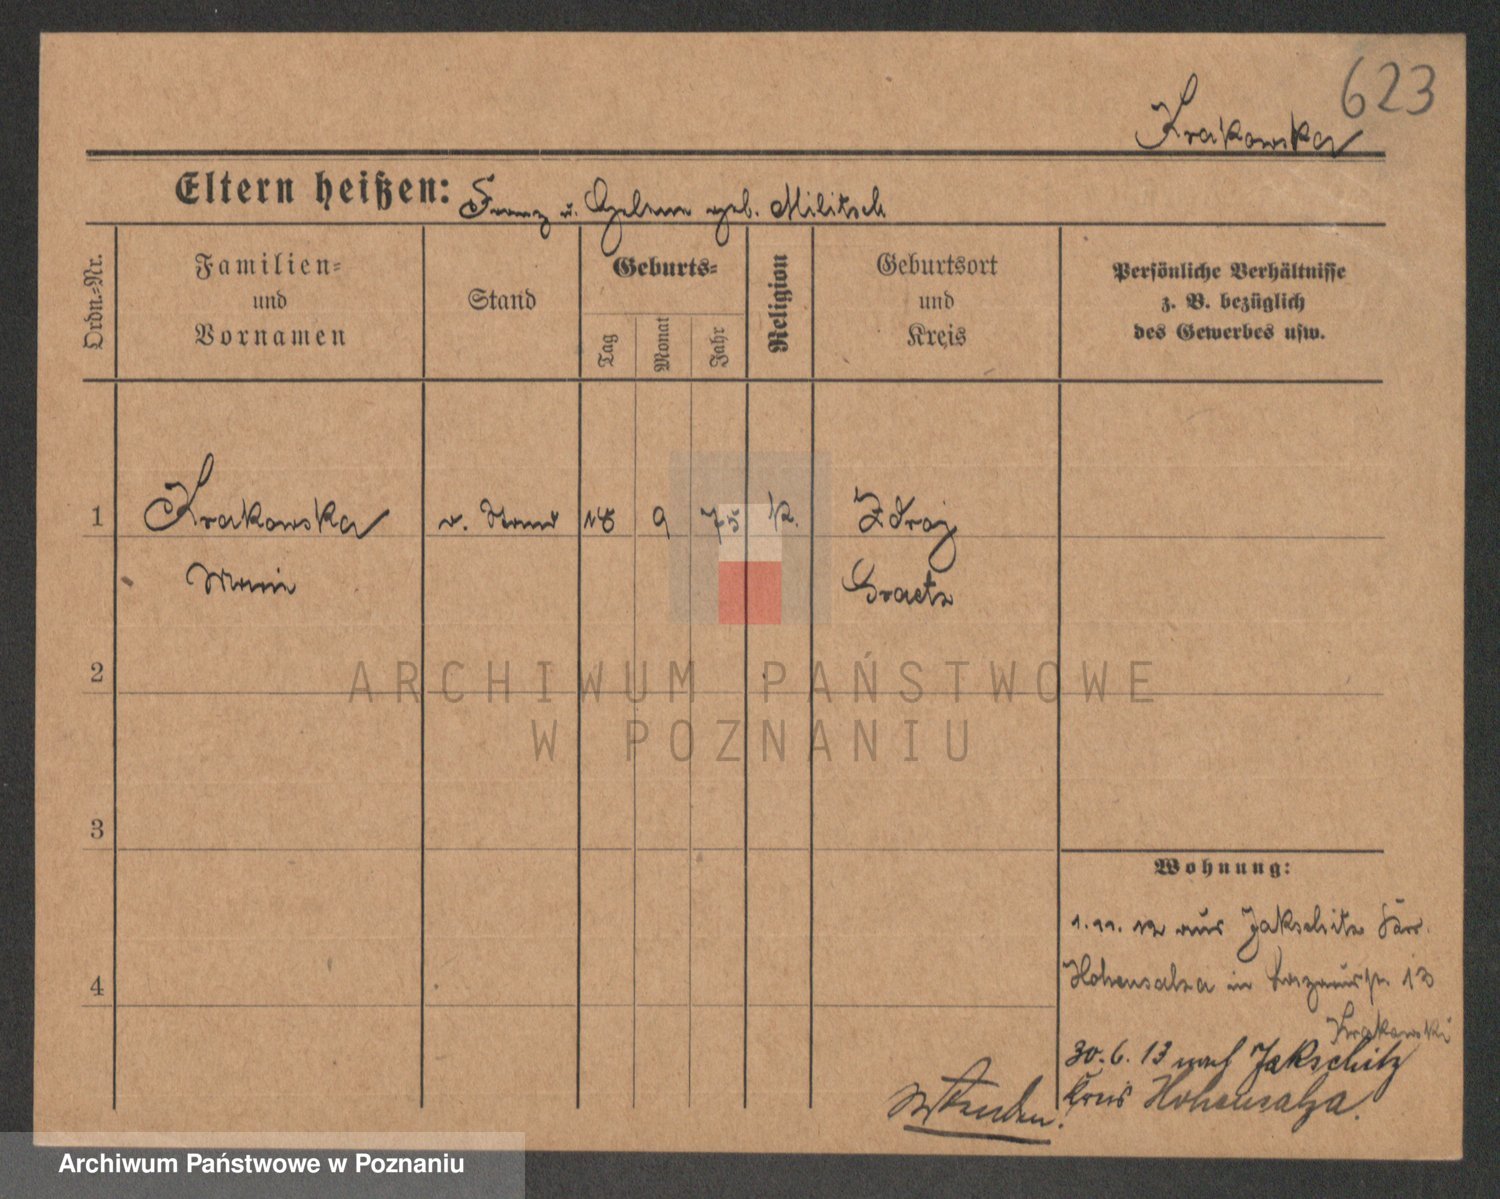 623
Krakowska
Eltern heißen: Franz u. geb. Militsch
Ordn.=Nr.
Familien=
und
Vornamen
Stand
Geburts=
Tag
Monat
Jahr
Religion
Geburtsort
und
Kreis
Persönliche Verhältnisse
z. B. bezüglich
des Gewerbes usw.
1
Krakowska
Marie
o. Stand
18
9
75
k.
Zdroj
Graetz
2
3
4
Wohnung:
1. 11. 12 aus Jakschitz
Hohensalza in 13
Krakowski
30. 6. 13 nach Jakschitz
Kreis Hohensalza.
ARCHIWUM PAŃSTWOWE
W POZNANIU
Archiwum Państwowe w Poznaniu